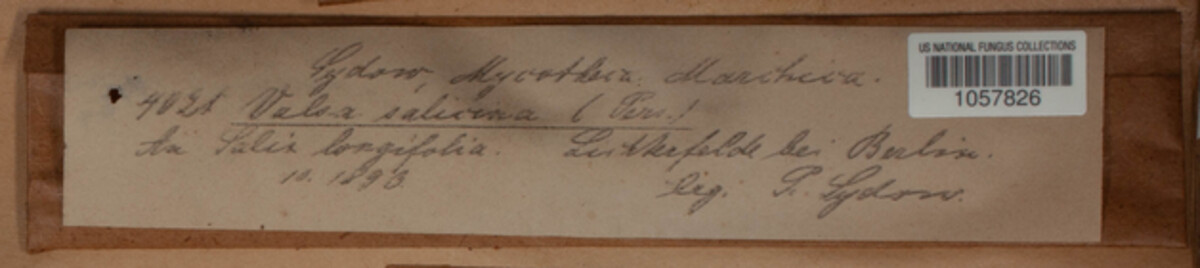 Sydow, Mycotheca Marchica.
US NATIONAL FUNGUS COLLECTIONS
1057826
Valsa salicina (Pers.)
An Salix longifolia. Lichterfelde bei Berlin.
10. 1893.
leg. P. Sydow.